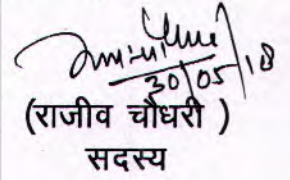 30/05/18
(राजीव चौधरी )
सदस्य